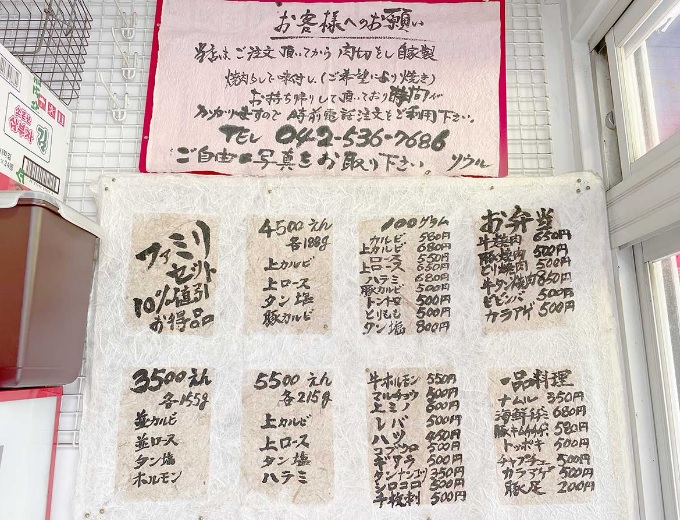 お客様へのお願い
当店は、ご注文頂いてから肉切をし自家製
焼肉らして味付し、(ご希望により焼き)
お持ち帰りして頂いており時間が
かかりますので事前電話注文をご利用下さい。
TEL 042-536-7686
ご自由に写真をお取り下さい。 ソウル
삼부자
김
ファミリ
セット
10%値引
お得品
4500えん
各188g
上カルビ
上ロース
タン塩
豚カルビ
100グラム
カルビ 580円
上カルビ 680円
ロース 550円
上ロース 650円
ハラミ 680円
豚カルビ 500円
トントロ 500円
とりもも 500円
タン塩 800円
お弁当
牛焼肉 650円
豚焼肉 500円
とり焼肉 500円
牛タン焼肉 850円
ビビンバ 500円
カラアゲ 500円
3500えん
各155g
並カルビ
並ロース
タン塩
ホルモン
5500えん
各215g
上カルビ
上ロース
タン塩
ハラミ
牛ホルモン 550円
マルチョウ 600円
上ミノ 600円
レバ 500円
ハツ 450円
コブクロ 500円
ギアラ 500円
タンナンコツ 350円
シロコロ 500円
牛枝刺 500円
一品料理
ナムル 350円
海鮮チヂミ 680円
豚キムチチヂミ 580円
トッポキ 500円
チャプチェ 500円
カラアゲ 500円
豚足 200円